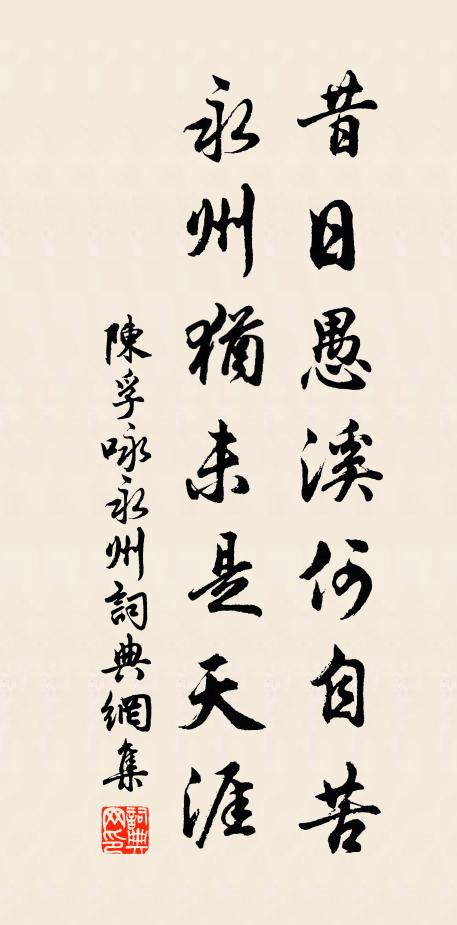 昔日愚溪何自苦
永州猶未是天涯
陳孚咏永州詞典網集
詞典網印